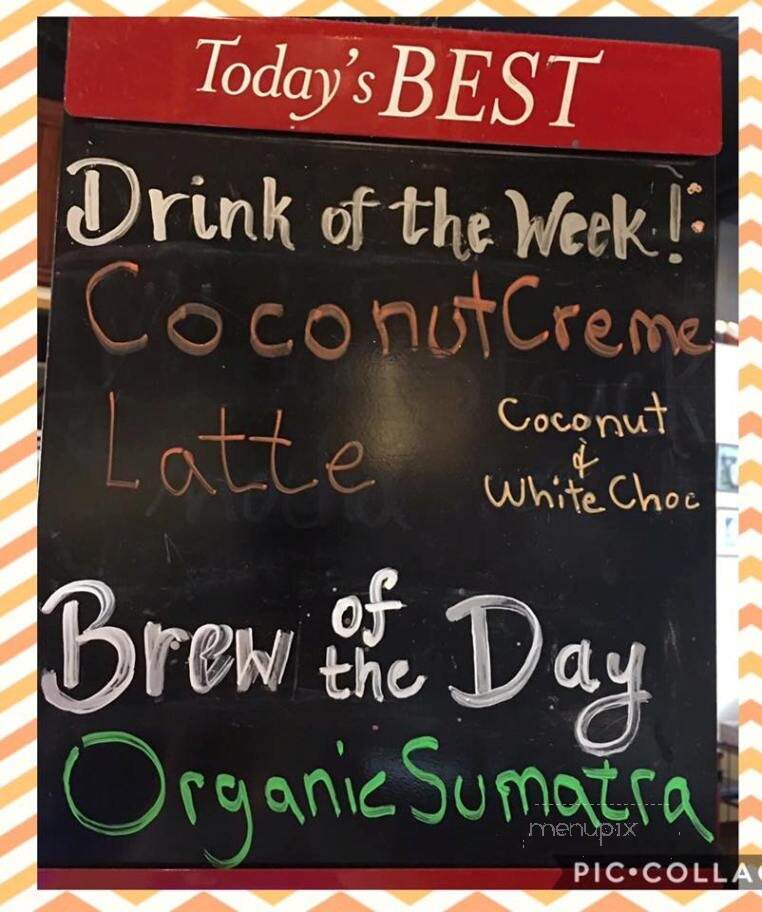 Today's BEST
Drink of the Week!:
Coconut Creme
Latte
Coconut
&
White Choc
Brew of the Day
Organic Sumatra
menupix
PIC•COLLA